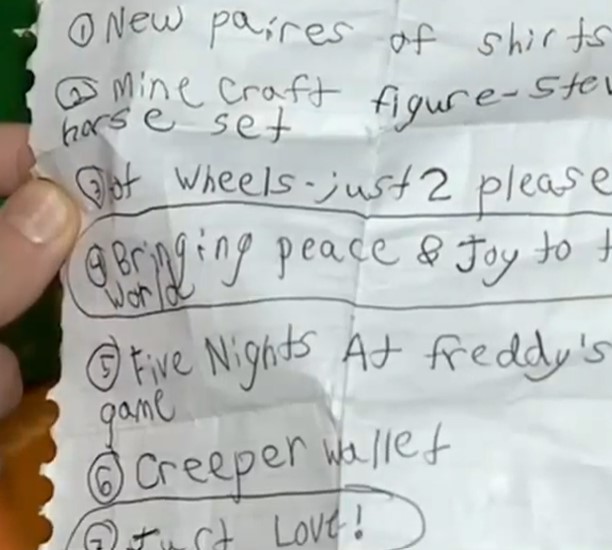 ① New paires of shirts
② Mine craft figure-Stev
horse set
③ ot wheels-just 2 please
④ Bringing peace & Joy to t
world
⑤ Five Nights At freddy's
game
⑥ Creeper wallet
⑦ Just Love!